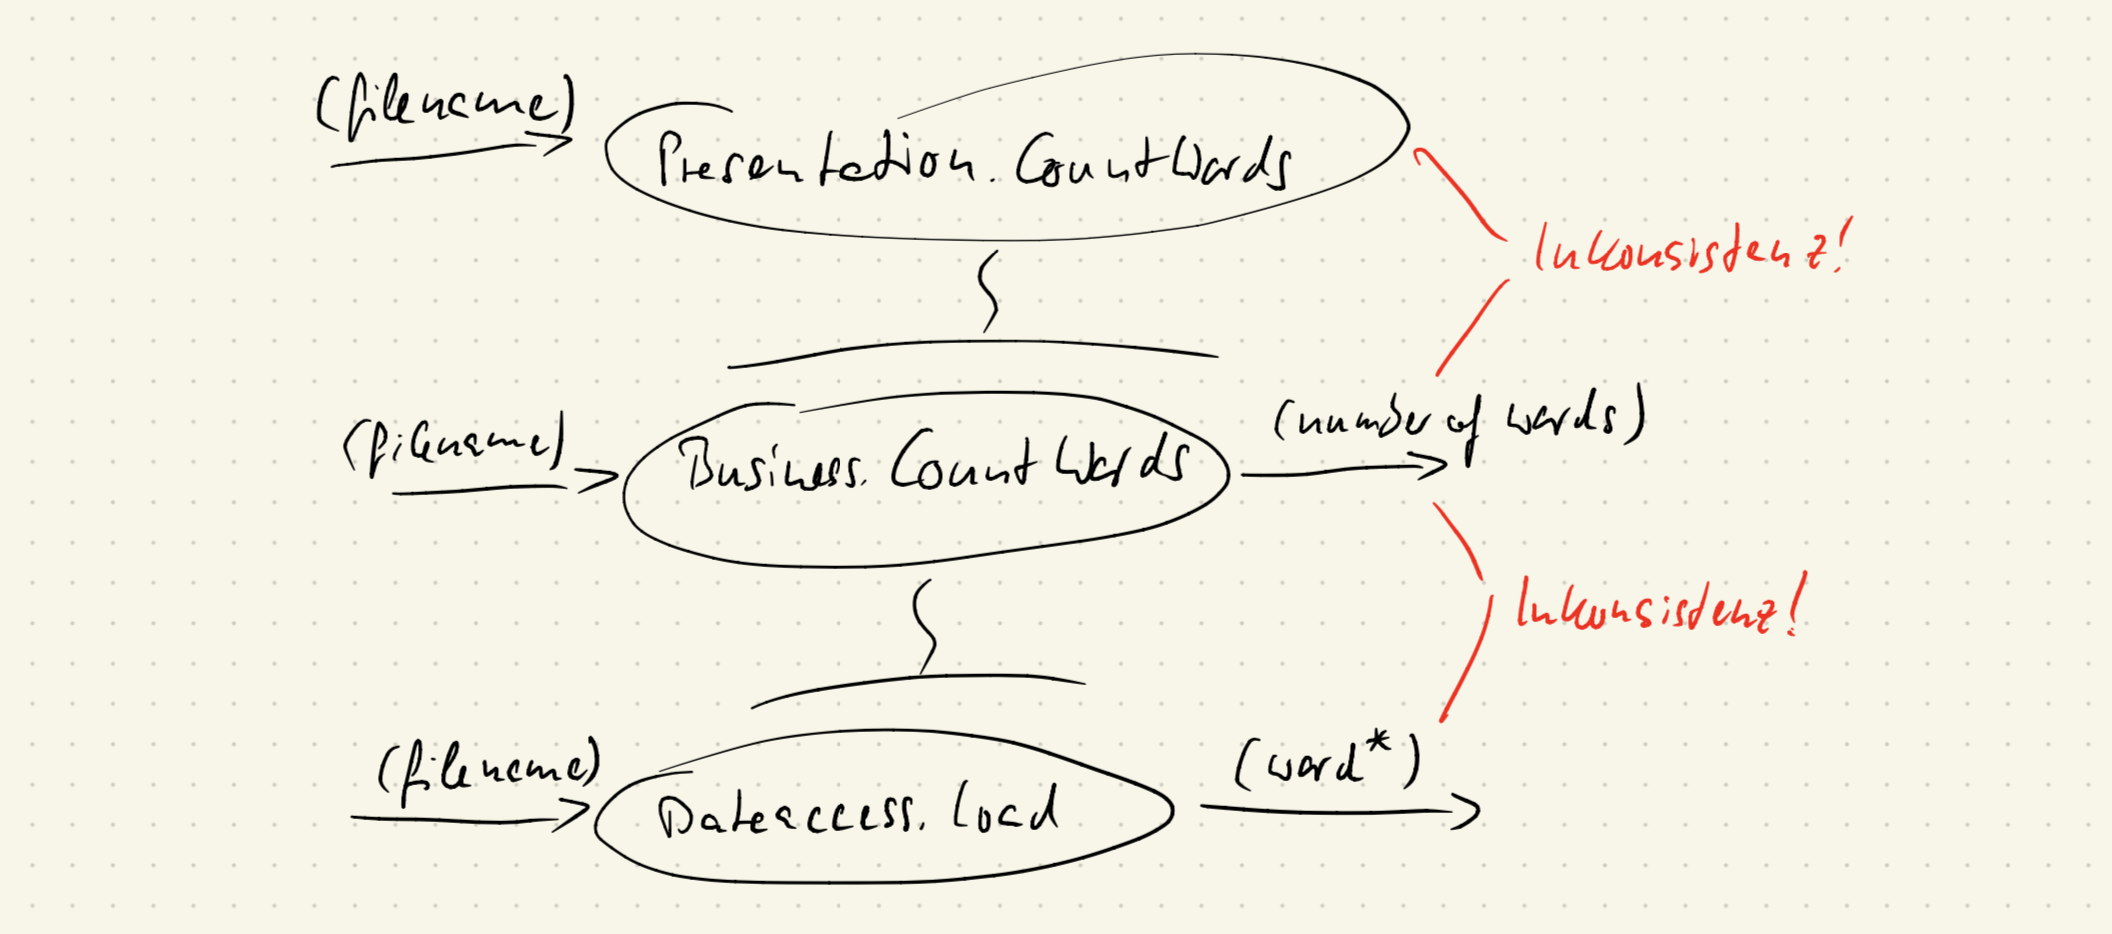 (filename)
Presentation. CountWords
Inkonsistenz!
(filename)
Business. CountWords
(number of words)
Inkonsistenz!
(filename)
Dataaccess. Load
(word*)